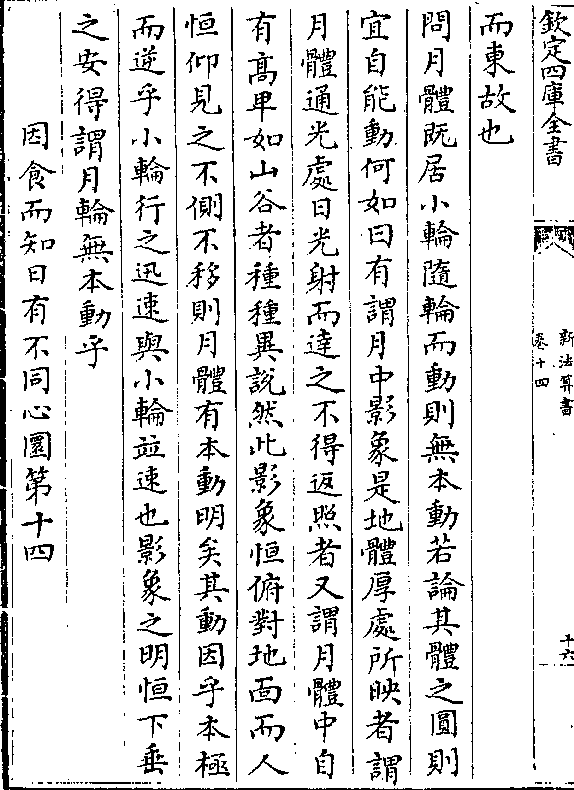 欽定四庫全書
新法算書
卷十四
十六
而東故也
問月體既居小輪隨輪而動則無本動若論其體之圓則
宜自能動何如曰有謂月中影象是地體厚處所映者謂
月體通光處日光射而達之不得返照者又謂月體中自
有高卑如山谷者種種異說然此影象恒俯對地面而人
恒仰見之不側不移則月體有本動明矣其動因乎本極
而逆乎小輪行之迅速與小輪並速也影象之明恒下垂
之安得謂月輪無本動乎
因食而知日有不同心圜第十四